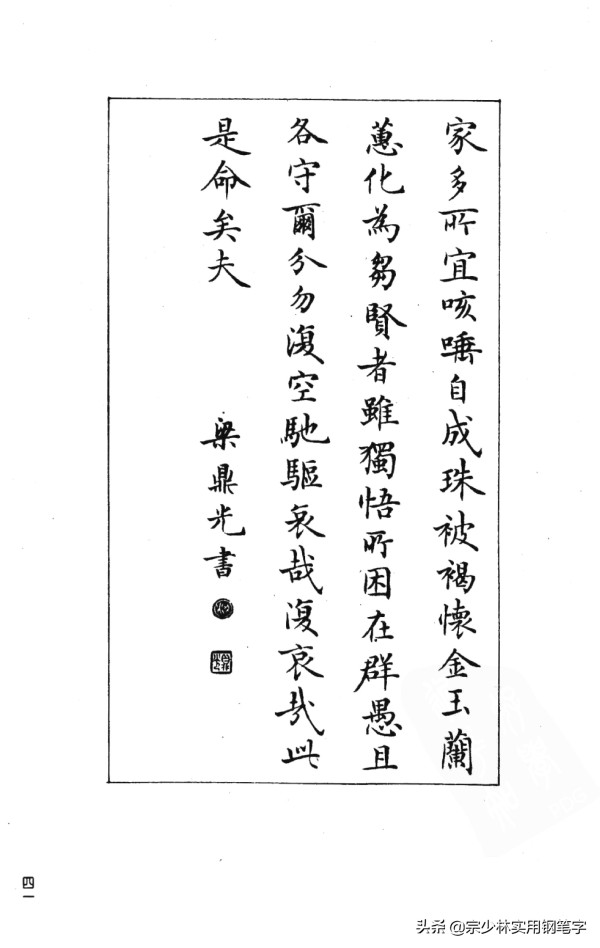 家多所宜咳唾自成珠被褐懷金玉蘭
蕙化為芻賢者雖獨悟所困在群愚且
各守爾分勿復空馳驅哀哉復哀哉此
是命矣夫 梁鼎光書
四一
头条 @宗少林实用钢笔字